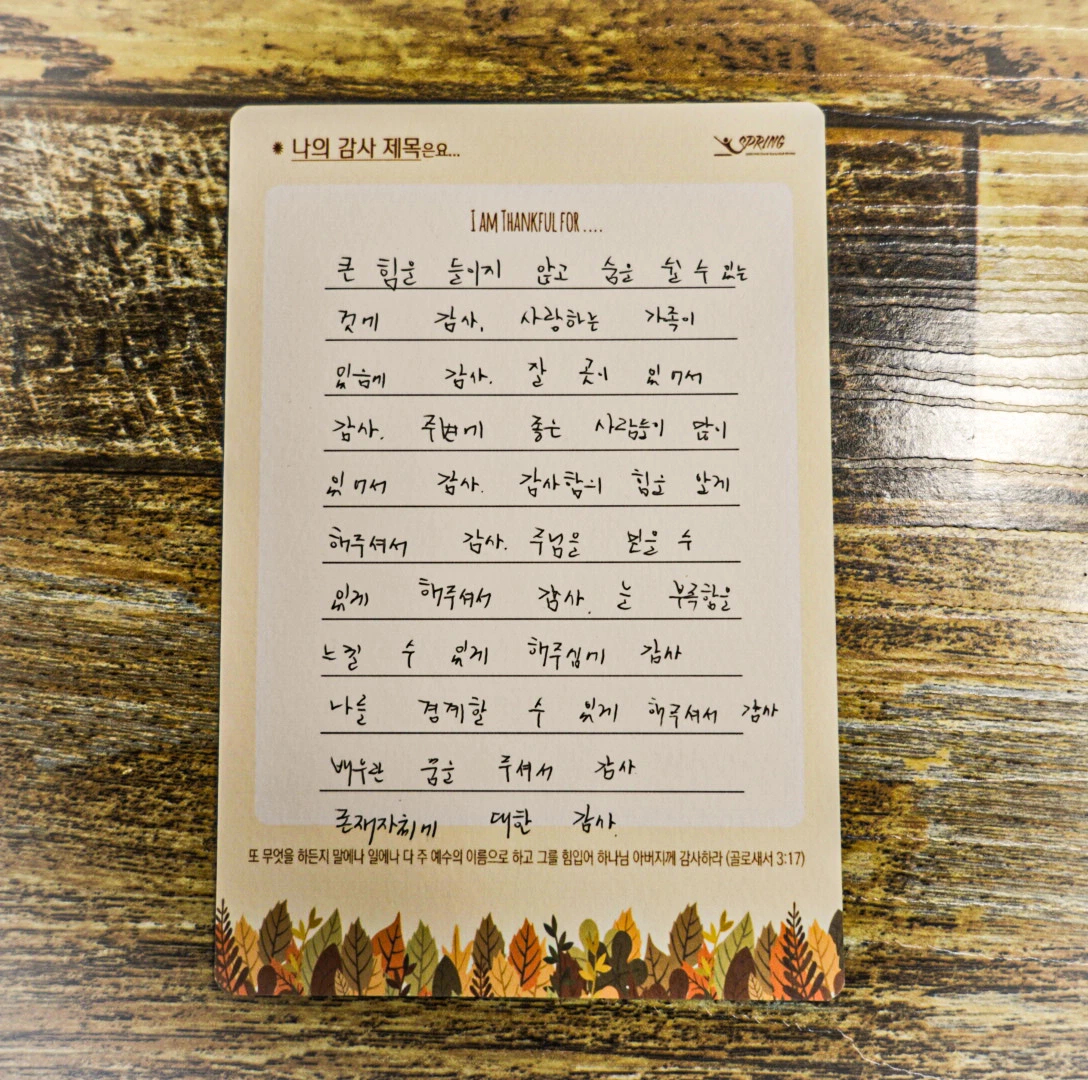 나의 감사 제목은요...
SPRING
I AM THANKFUL FOR ....
큰 힘을 들이지 않고 숨을 쉴 수 있는
것에 감사. 사랑하는 가족이
있음에 감사. 잘 곳이 있어서
감사. 주변에 좋은 사람들이 많이
있어서 감사. 감사함의 힘을 알게
해주셔서 감사. 주님을 믿을 수
있게 해주셔서 감사. 늘 부족함을
느낄 수 있게 해주심에 감사
나를 경계할 수 있게 해주셔서 감사
배우관 꿈을 주셔서 감사
존재자체에 대한 감사.
또 무엇을 하든지 말에나 일에나 다 주 예수의 이름으로 하고 그를 힘입어 하나님 아버지께 감사하라 (골로새서 3:17)